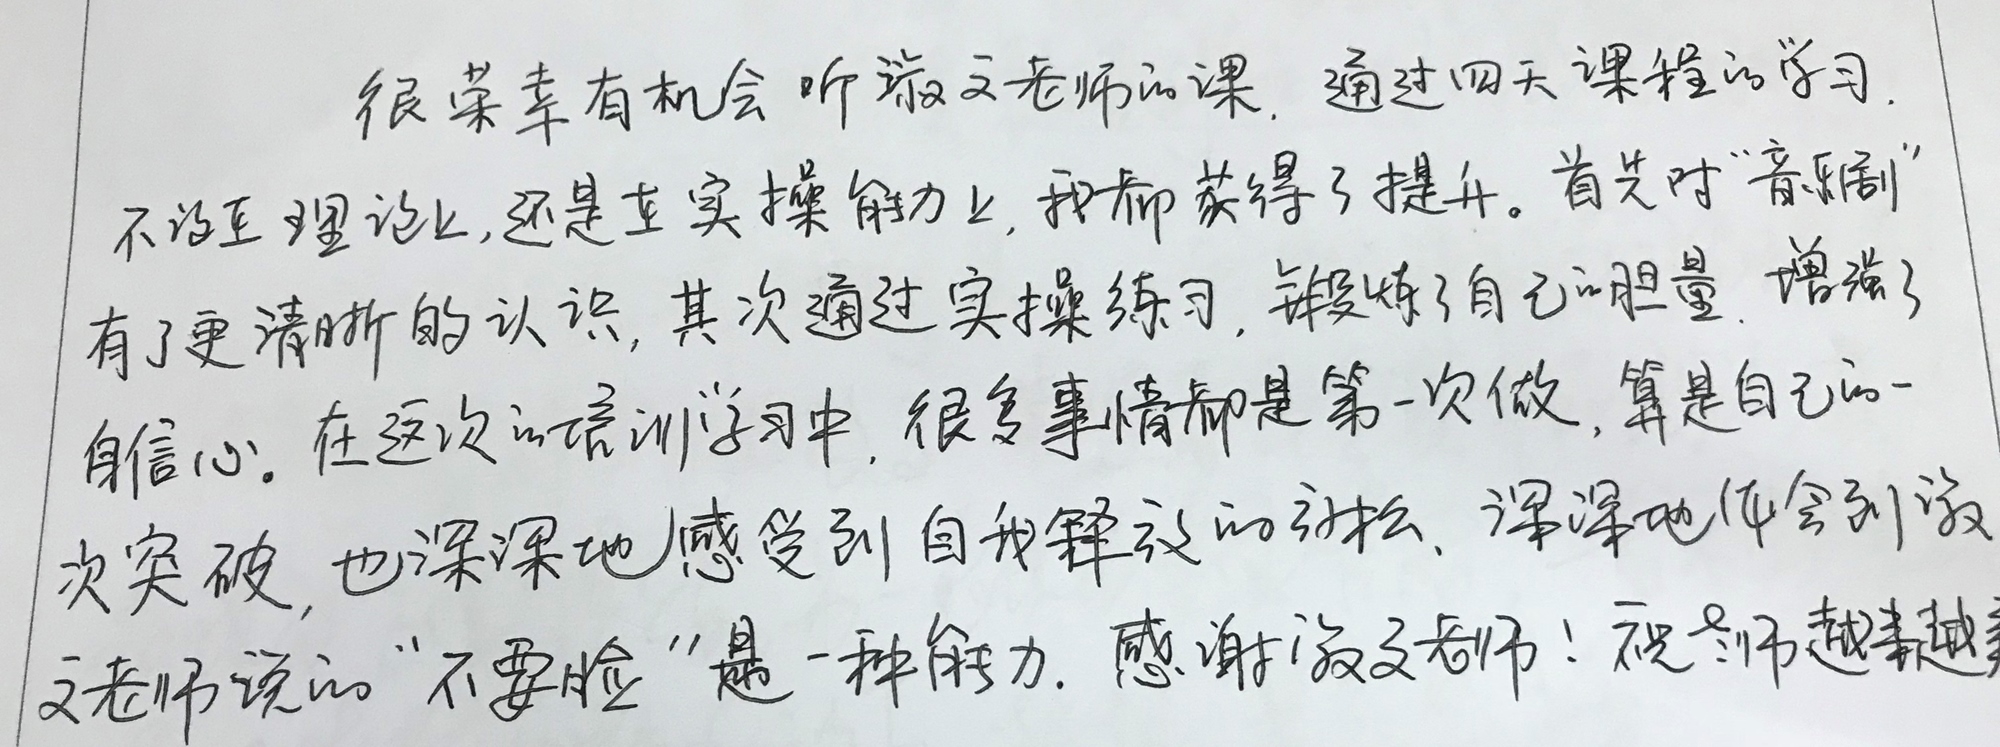 很荣幸有机会听漵文老师的课,通过四天课程的学习,
不论在理论上,还是在实操能力上,我都获得了提升。首先对“音乐剧”
有了更清晰的认识,其次通过实操练习,锻炼了自己的胆量,增强了
自信心。在这次的培训学习中,很多事情都是第一次做,算是自己的一
次突破,也深深地感受到自我释放的轻松、深深地体会到漵
文老师说的“不要脸”是一种能力.感谢漵文老师!祝老师越来越美